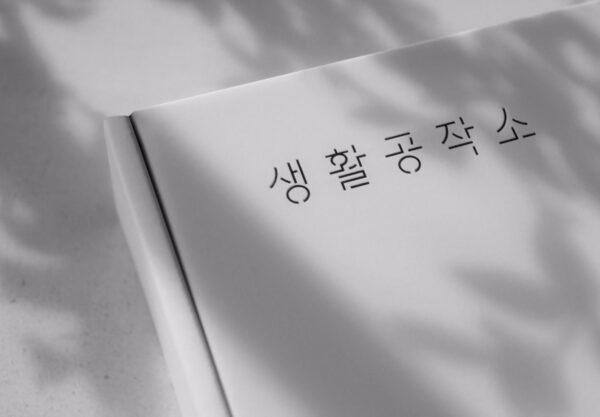 생활공작소